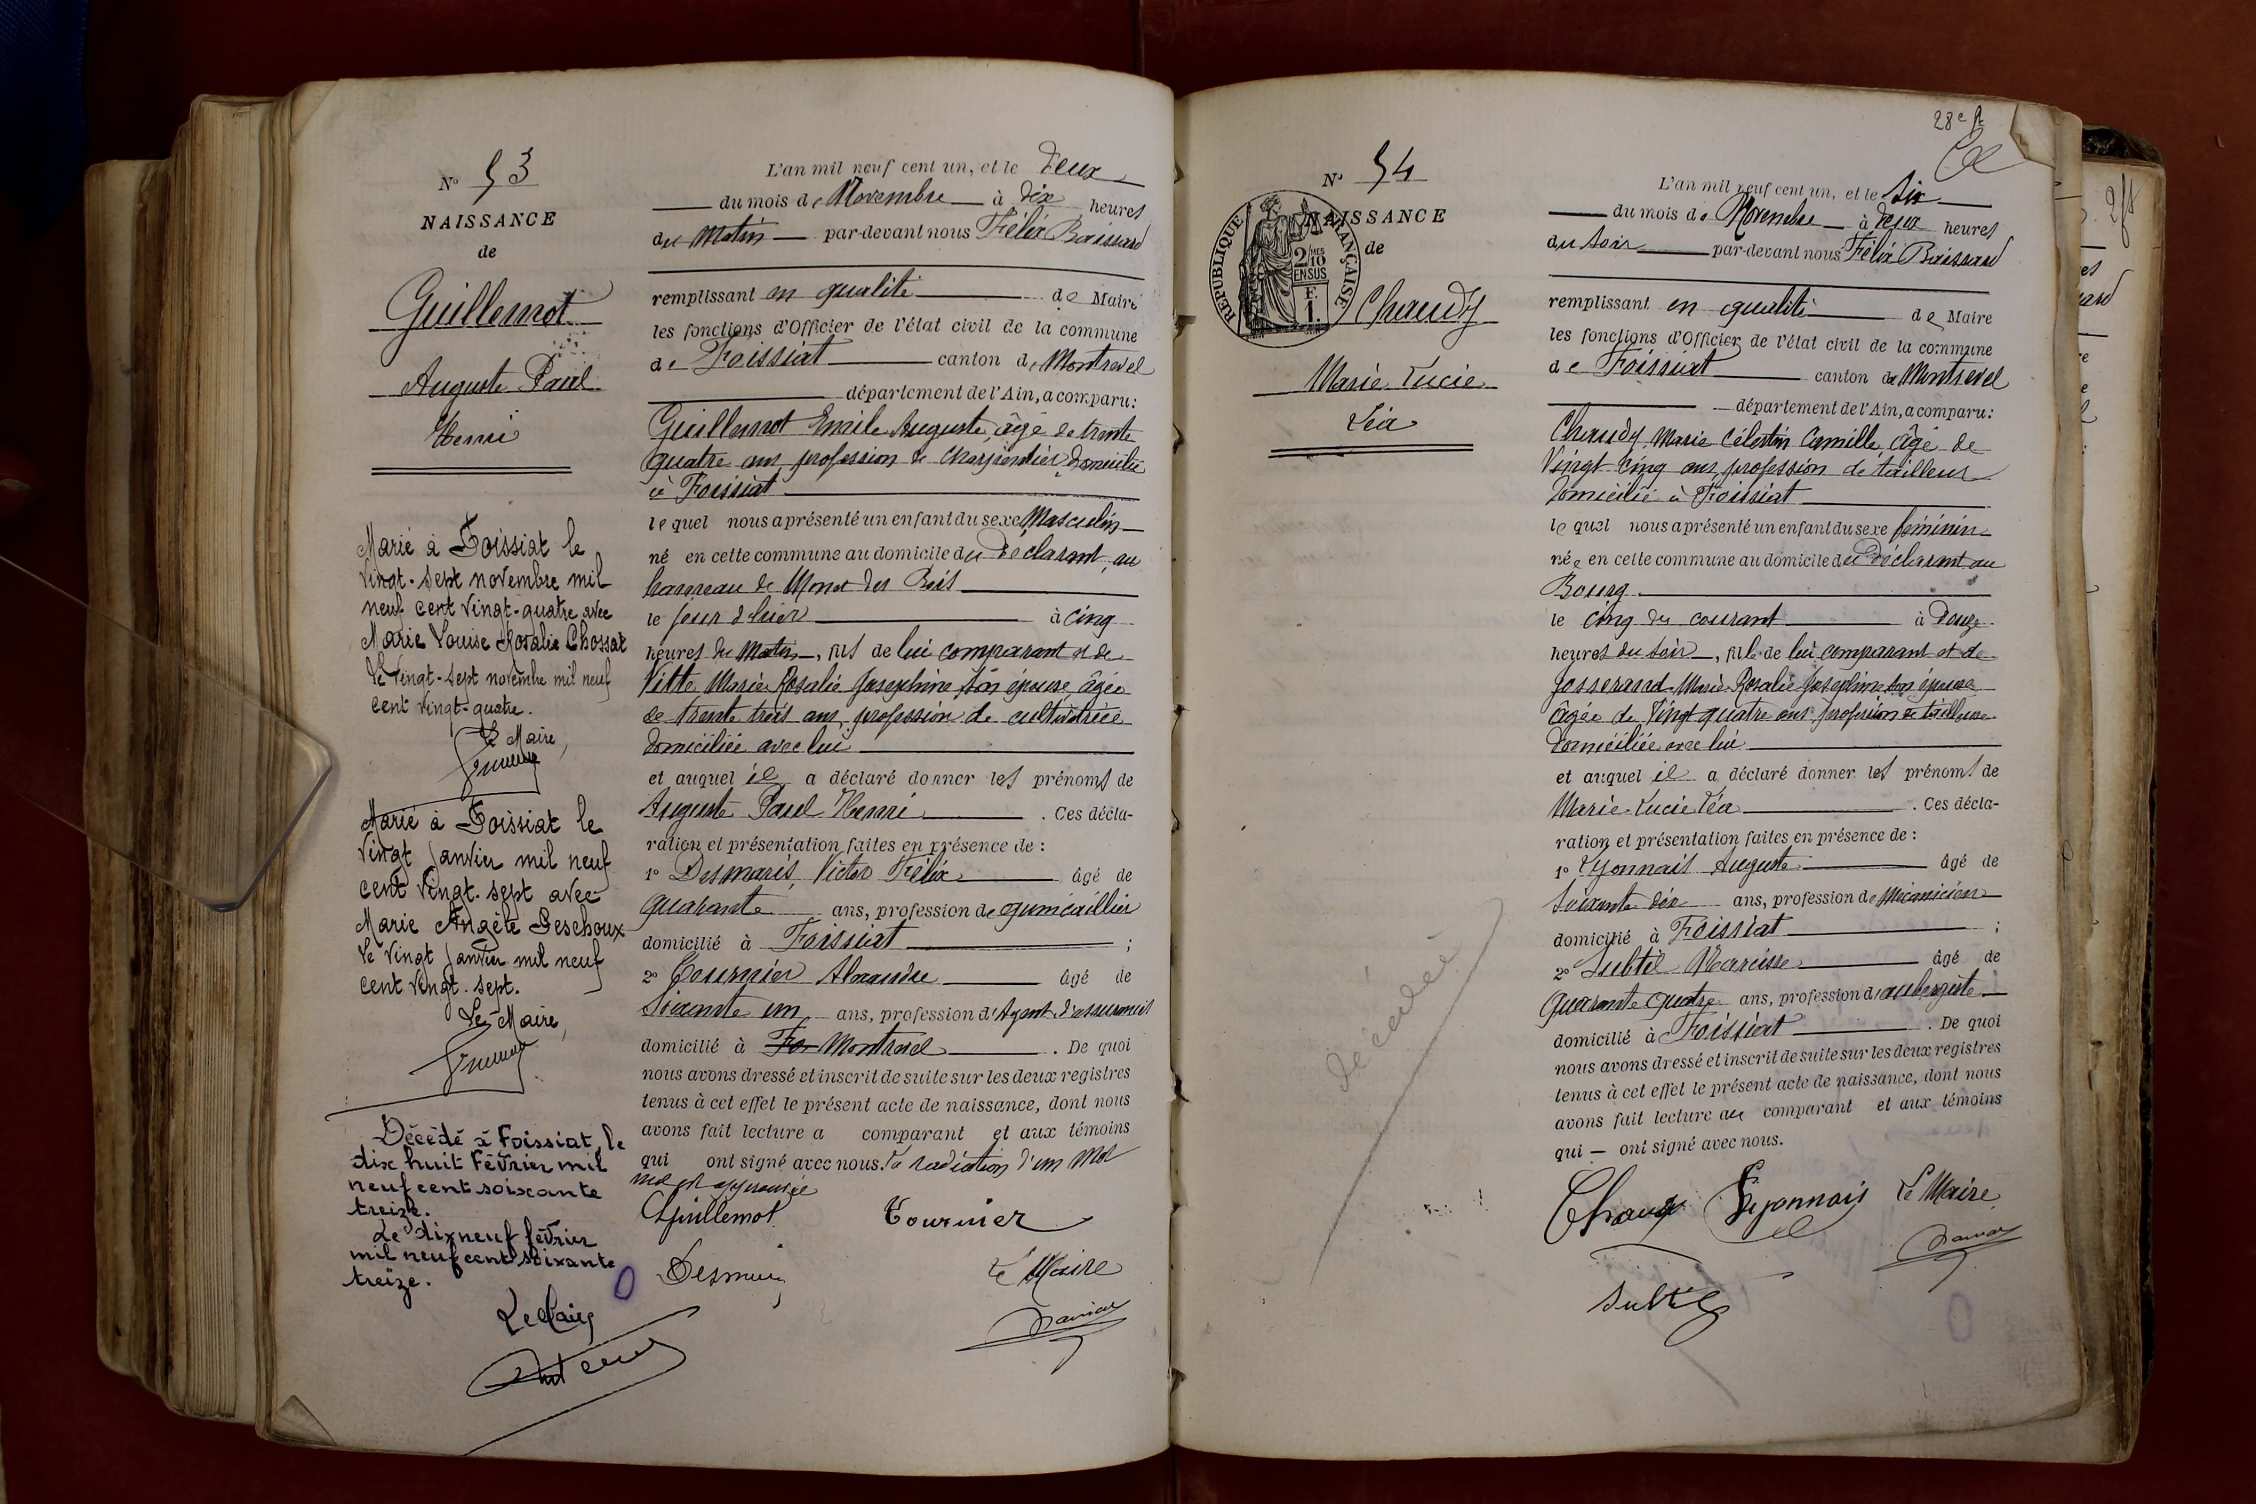 N° 53
NAISSANCE
de
Guillemot
Auguste Paul
Henri
Marié à Foissiat le
vingt-sept novembre mil
neuf cent vingt-quatre avec
Marie Louise Rosalie Chossat
Le vingt-sept novembre mil neuf
cent vingt-quatre.
Le Maire,
Marié à Foissiat le
vingt janvier mil neuf
cent vingt-sept avec
Marie Angèle Deschoux
Le vingt janvier mil neuf
cent vingt-sept.
Le Maire,
Décédé à Foissiat, le
dix huit Février mil
neuf cent soixante
treize.
Le dix neuf février
mil neuf cent soixante
treize.
Le Maire
L'an mil neuf cent un, et le deux
du mois de Novembre à dix heures
du Matin par-devant nous Félix Boissard
remplissant en qualité de Maire
les fonctions d'Officier de l'état civil de la commune
de Foissiat canton de Montrevel
département de l'Ain, a comparu:
Guillemot Emile Auguste, âgé de trente
quatre ans, profession de charpentier domicilié
à Foissiat
lequel nous a présenté un enfant du sexe Masculin
né en cette commune au domicile du Déclarant, au
hameau de Monet des Bois
le jour d'hier à cinq
heures du Matin, fils de lui comparant et de
Vitte Marie Rosalie Josephine son épouse, âgée
de trente trois ans, profession de cultivatrice
domiciliée avec lui
et auquel il a déclaré donner les prénoms de
Auguste Paul Henri . Ces décla-
ration et présentation faites en présence de :
1° Desmaris, Victor Félix âgé de
quarante ans, profession de quincaillier
domicilié à Foissiat ;
2° Tournier Alexandre âgé de
Soixante un ans, profession d'Agent d'assurances
domicilié à Foi Montrevel . De quoi
nous avons dressé et inscrit de suite sur les deux registres
tenus à cet effet le présent acte de naissance, dont nous
avons fait lecture a comparant et aux témoins
qui ont signé avec nous. La radiation d'un mot
nul est approuvée
Guillemot Tournier
Desmaris Le Maire
28e f
N° 54
NAISSANCE
de
RÉPUBLIQUE FRANÇAISE
2/10 EN SUS
F. 1.
Chaudy
Marie Lucie
Léa
décédée
L'an mil neuf cent un, et le Six
du mois de Novembre à deux heures
du soir par-devant nous Félix Boissard
remplissant en qualité de Maire
les fonctions d'Officier de l'état civil de la commune
de Foissiat canton de Montrevel
département de l'Ain, a comparu:
Chaudy Marie Célestin Camille, âgé de
Vingt cinq ans, profession de tailleur
domicilié à Foissiat
lequel nous a présenté un enfant du sexe féminin
née en cette commune au domicile du Déclarant au
Bourg
le cinq du courant à Douze
heures du soir, fille de lui comparant et de
Josserand Marie Rosalie Josephine son épouse
âgée de vingt quatre ans profession de tailleuse
domiciliée avec lui
et auquel il a déclaré donner les prénoms de
Marie Lucie Léa . Ces décla-
ration et présentation faites en présence de :
1° Lyonnais Auguste âgé de
Soixante dix ans, profession de Mécanicien
domicilié à Foissiat ;
2° Subtil Narcisse âgé de
quarante quatre ans, profession d'aubergiste
domicilié à Foissiat . De quoi
nous avons dressé et inscrit de suite sur les deux registres
tenus à cet effet le présent acte de naissance, dont nous
avons fait lecture au comparant et aux témoins
qui — ont signé avec nous.
Chaudy Lyonnais Le Maire
Subtil